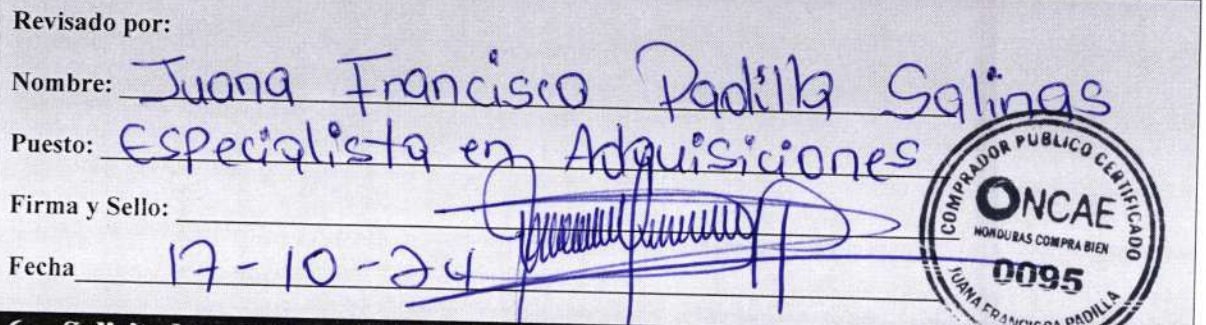 Revisado por:
Nombre: Juana Francisca Padilla Salinas
Puesto: Especialista en Adquisiciones
Firma y Sello:
Fecha 17-10-24
COMPRADOR PUBLICO CERTIFICADO
ONCAE
HONDURAS COMPRA BIEN
0095
JUANA FRANCISCA PADILLA